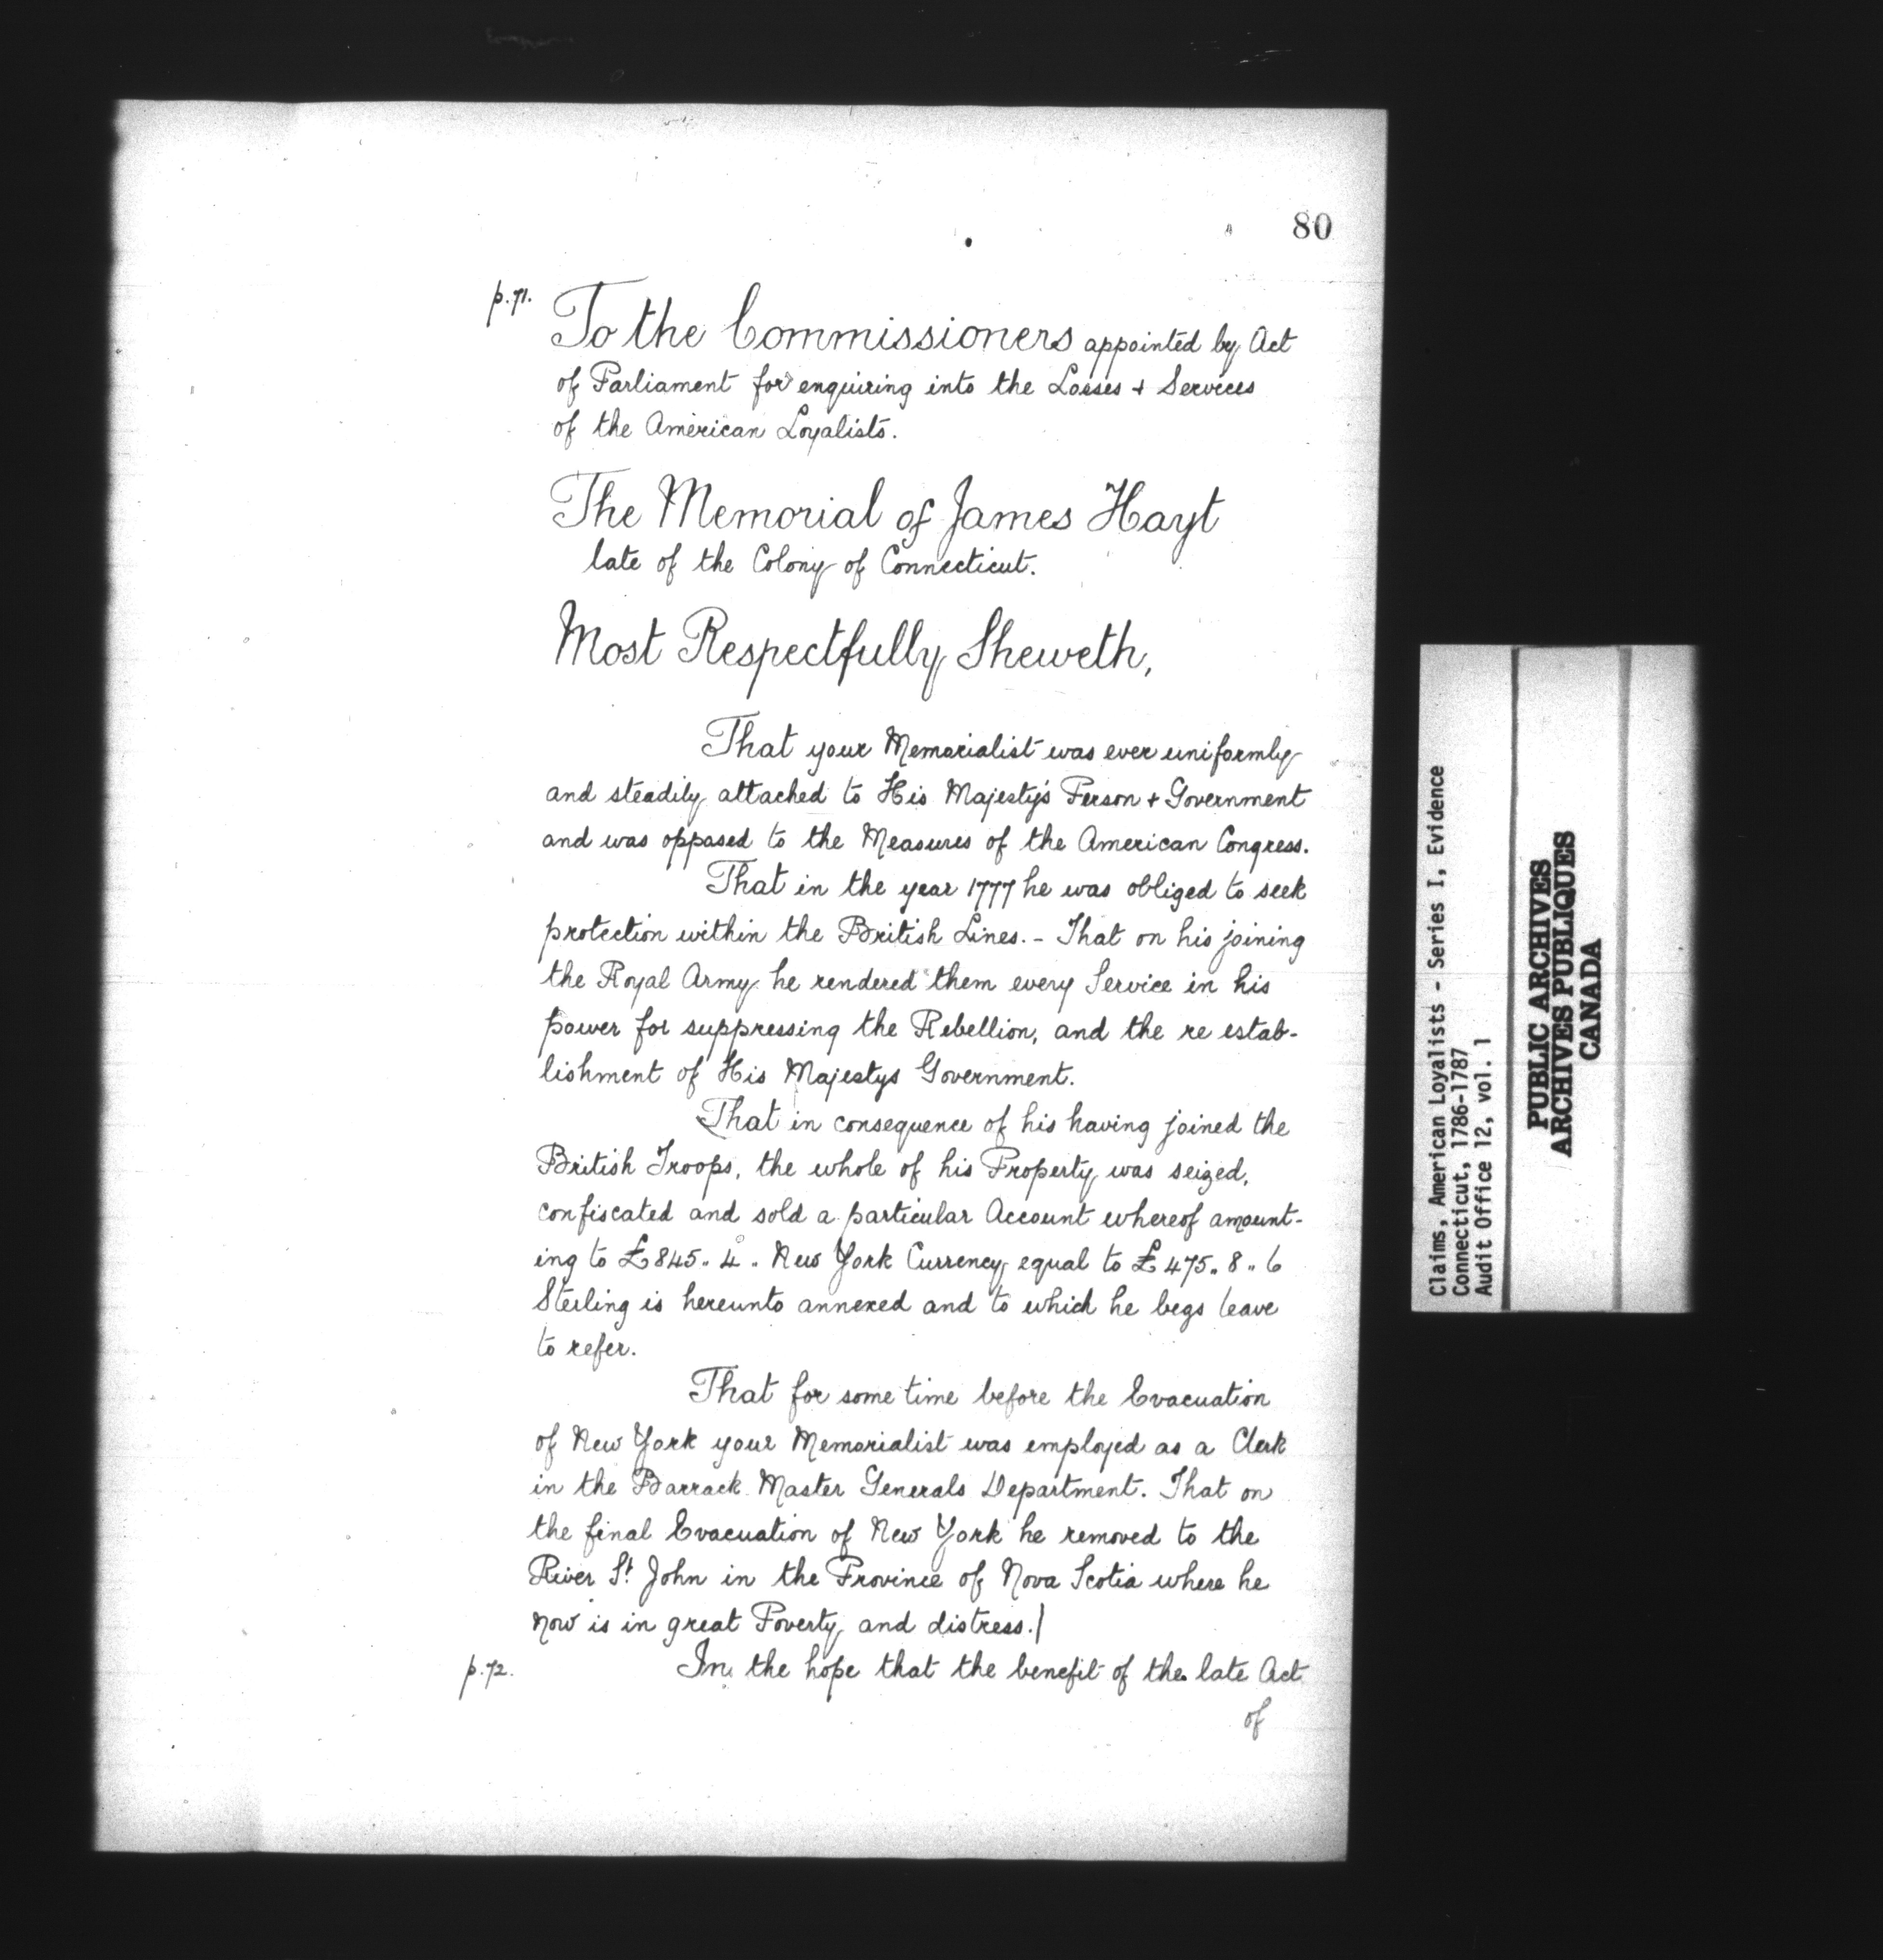 80
p.71.
To the Commissioners appointed by Act
of Parliament for enquiring into the Losses + Services
of the American Loyalists.
The Memorial of James Hayt
late of the Colony of Connecticut.
Most Respectfully Sheweth,
That your Memorialist was ever uniformly
and steadily attached to His Majesty's Person + Government
and was opposed to the Measures of the American Congress.
That in the year 1777 he was obliged to seek
protection within the British Lines. - That on his joining
the Royal Army he rendered them every Service in his
power for suppressing the Rebellion, and the re estab-
lishment of His Majestys Government.
That in consequence of his having joined the
British Troops, the whole of his Property was seized,
confiscated and sold a particular Account whereof amount-
ing to £845.. 4.. New York Currency equal to £475.. 8.. 6
Sterling is hereunto annexed and to which he begs leave
to refer.
That for some time before the Evacuation
of New York your Memorialist was employed as a Clerk
in the Barrack Master Generals Department. That on
the final Evacuation of New York he removed to the
River St. John in the Province of Nova Scotia where he
now is in great Poverty and distress.|
p.72.
In the hope that the benefit of the late Act
of
Claims, American Loyalists - Series I, Evidence
Connecticut, 1786-1787
Audit Office 12, vol. 1
PUBLIC ARCHIVES
ARCHIVES PUBLIQUES
CANADA